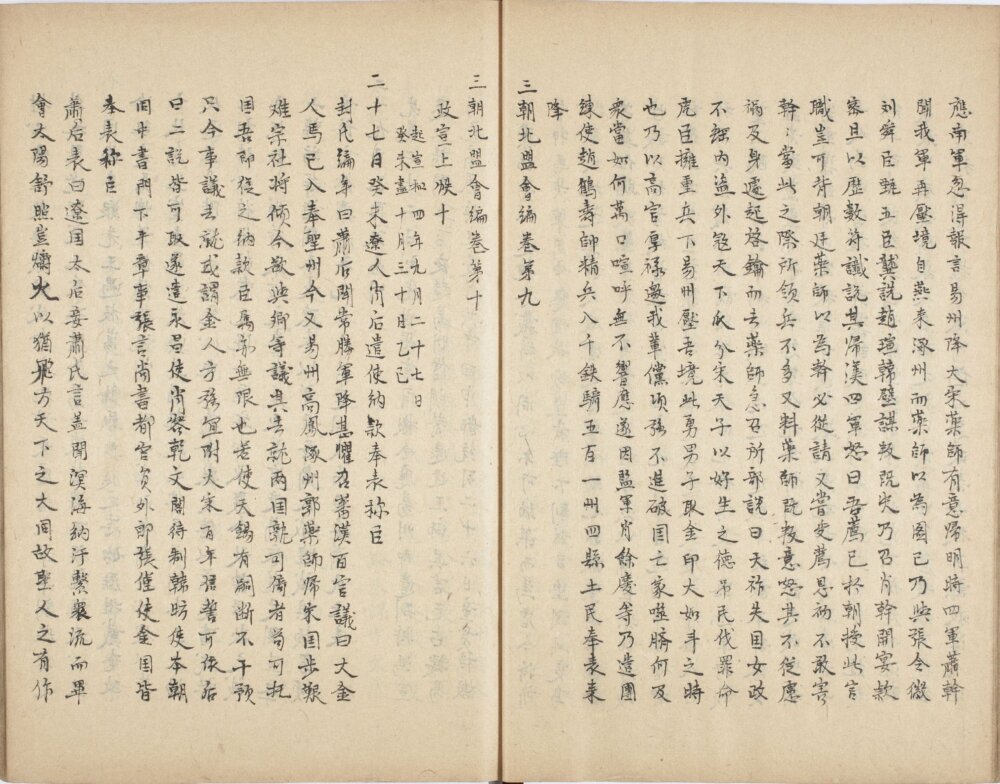 應南軍忽得報言易州降大宋藥師有意歸明時四軍蕭幹
聞我軍再壓境自燕來涿州而藥師以為圖己乃與張令徽
刘舜臣甄五臣龔説趙瑄韓璧謀叛既决乃召肖幹開宴款
密且以歷數符讖説其歸漢四軍怒曰吾薦已於朝授此官
職豈可背朝廷藥師以為幹必從請又嘗受薦恩初不敢害
幹當此之際所領兵不多又料藥師既叛意怒其不從慮
禍及身遽起啓鑰而去藥師急召所部説曰天祚失国女政
不綱内盗外寇天下瓜分宋天子以好生之德吊民伐罪命
虎臣擁重兵下易州壓吾境此勇男子取金印大如斗之時
也乃以高官厚禄邀我軰儻項强不進破国亡家噬臍何及
衆當如何萬口喧呼無不響應遂囚監軍肖餘慶等乃遣團
練使趙鶴壽師精兵八千鉄騎五百一州四縣士民奉表来
降
三朝北盟會編卷第九
三朝北盟會編卷第十
政宣上帙十
起宣和四年九月二十七日
癸未盡十月三十日乙已
二十七日癸未遼人肖后遣使納款奉表称臣
封氏編年曰蕭后聞常勝軍降甚懼召蕃漢百官議曰大金
人馬已入奉聖州今又易州高鳳涿州郭藥師帰宋国步艱
难宗社将傾今欲與卿等議其去就两国孰可倚者苟可扎
国吾即從之納款臣属亦無限也若使天錫有嗣断不干預
只今事議去就或謂金人方强宜附大宋百年信誓可依后
曰二説皆可取遂遣永昌使肖容乾文閣待制韓昉使本朝
同中書門下平章事張言尚書都官員外郎張僅使金国皆
奉表称臣
肅后表曰遼国太后妾蕭氏言盖聞溟海納汙繫衆流而畢
會太陽舒照豈爝火以猶飛方天下之大同故聖人之有作